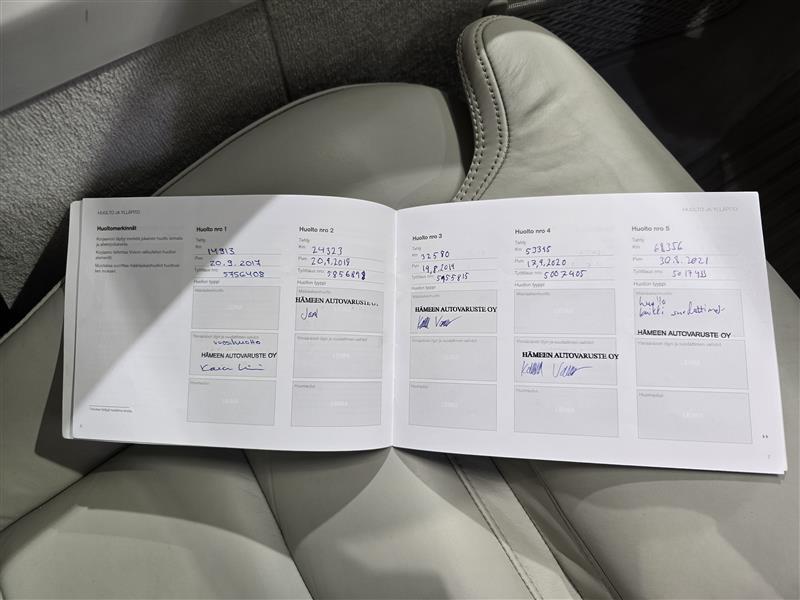 HUOLTO JA YLLÄPITO
Huoltomerkinnät
Huolto nro 1
Tehty
Km 14913
Pvm 20.9.2017
Työtilaus nro: 5756408
Huollon tyyppi
Määräaikaishuolto
LEIMA
Ylimääräinen öljyn ja suodattimen vaihto
vuosihuolto
HÄMEEN AUTOVARUSTE OY
Huomautus
LEIMA
Huolto nro 2
Tehty
Km 24323
Pvm 20.9.2018
Työtilaus nro:
Huollon tyyppi
HÄMEEN AUTOVARUSTE OY
Ylimääräinen öljyn ja suodattimen vaihto
LEIMA
Huomautus
LEIMA
6
HUOLTO JA YLLÄPITO
Huolto nro 3
Tehty
Km 32580
Pvm 19.8.2019
Työtilaus nro: 5955815
Huollon tyyppi
Määräaikaishuolto
HÄMEEN AUTOVARUSTE OY
Ylimääräinen öljyn ja suodattimen vaihto
LEIMA
Huomautus
LEIMA
Huolto nro 4
Tehty
Km 53315
Pvm 17.9.2020
Työtilaus nro: 5007405
Huollon tyyppi
Määräaikaishuolto
LEIMA
Ylimääräinen öljyn ja suodattimen vaihto
HÄMEEN AUTOVARUSTE OY
Huomautus
LEIMA
Huolto nro 5
Tehty
Km 68356
Pvm 30.8.2021
Työtilaus nro:
Huollon tyyppi
Määräaikaishuolto
Huolto
kaikki suodattimet
HÄMEEN AUTOVARUSTE OY
Ylimääräinen öljyn ja suodattimen vaihto
LEIMA
Huomautus
LEIMA
7